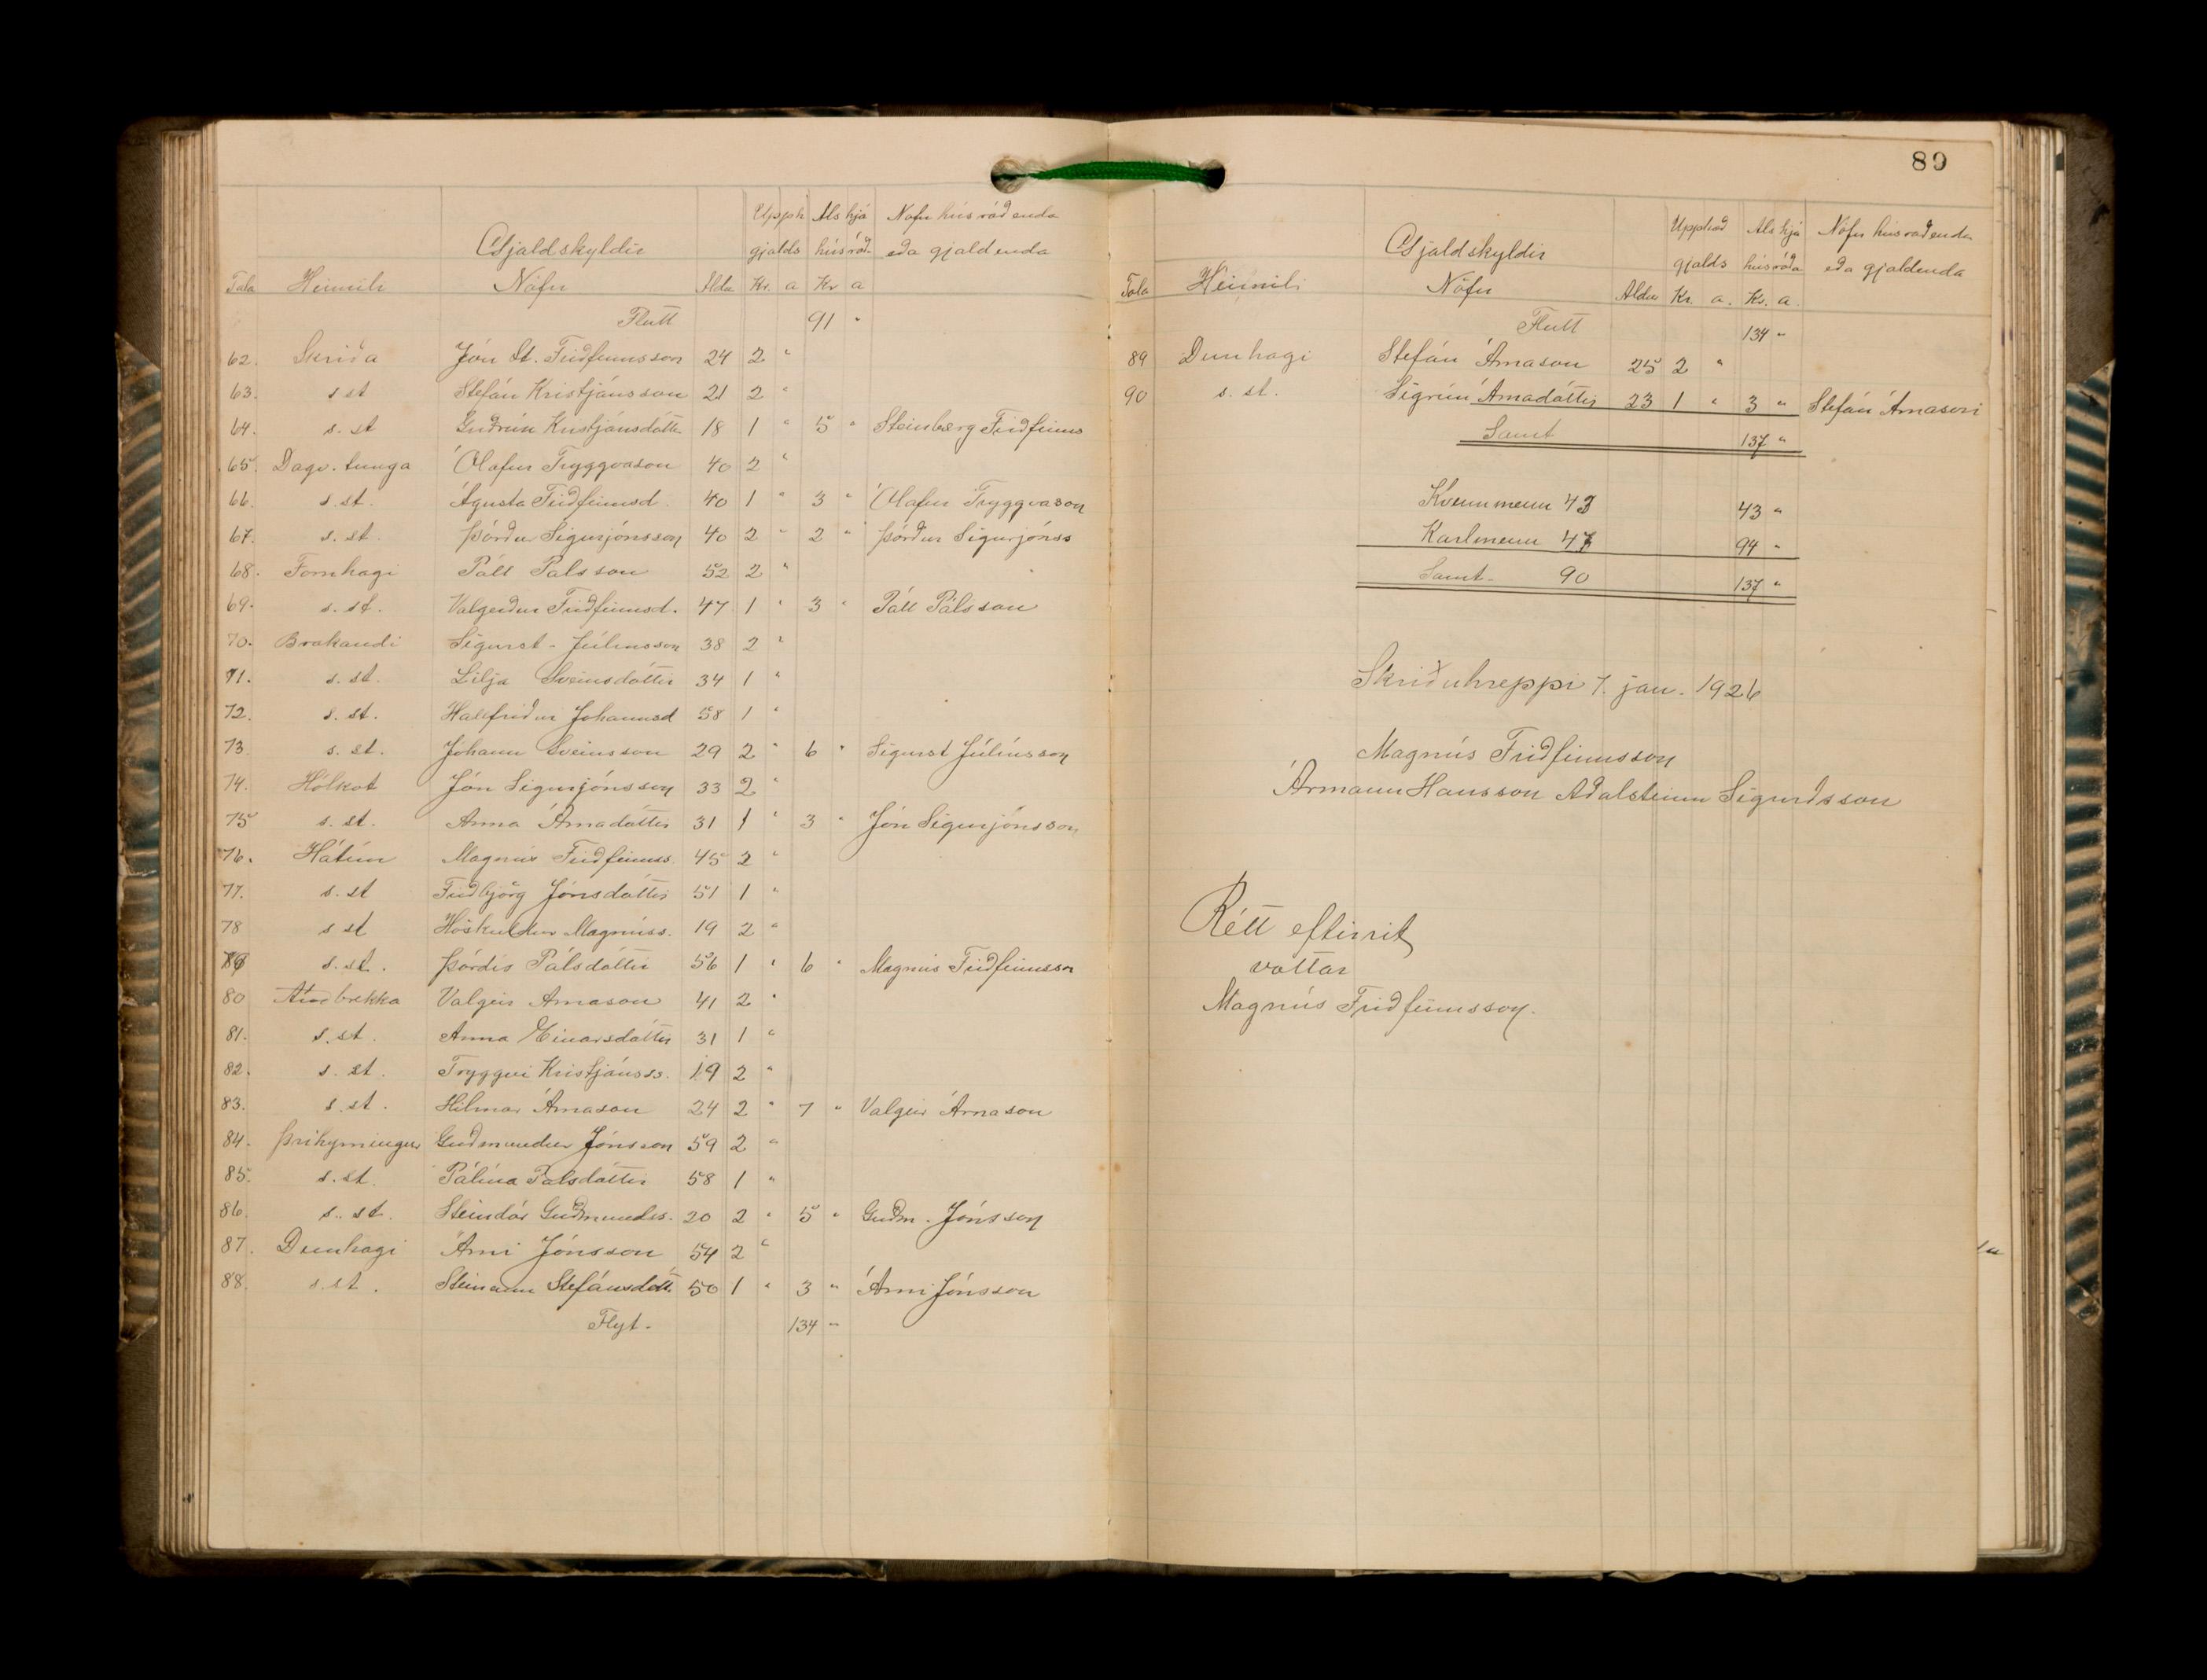 Upph Als hjá Nöfn húsráðenda
Gjaldskyldir gjalds húsráð. eða gjaldenda
Tala Heimili Nöfn Alda Kr. a Kr a
Flutt 91 "
62. Skriða Jón St. Friðfinnsson 24 2 "
63. s st Stefán Kristjánsson 21 2 "
64. s. st Guðrún Kristjánsdótt. 18 1 " 5 " Steinberg Friðfinns
65. Dagv. tunga Ólafur Tryggvason 40 2 "
66. s. st. Ágústa Friðfinnsd. 40 1 " 3 " Ólafur Tryggvason
67. s. st. Þórður Sigurjónsson 40 2 " 2 " Þórður Sigurjónss
68. Fornhagi Páll Pálsson 52 2 "
69. s. st. Valgerður Friðfinnsd. 47 1 " 3 " Páll Pálsson
70. Brakandi Sigurst. Júlíusson 38 2 "
71. s. st. Lilja Sveinsdóttir 34 1 "
72. s. st. Hallfríður Jóhannsd 58 1 "
73. s. st. Jóhann Sveinsson 29 2 " 6 " Sigurst Júlíusson
74. Hólkot Jón Sigurjónsson 33 2 "
75 s. st. Anna Árnadóttir 31 1 " 3 " Jón Sigurjónsson
76. Hátún Magnús Friðfinnss. 45 2 "
77. s. st Friðbjörg Jónsdóttir 51 1 "
78 s st Höskuldur Magnúss. 19 2 "
79 s. st. Þórdís Pálsdóttir 56 1 " 6 " Magnús Friðfinnsson
80 brekka Valgeir Árnason 41 2 "
81. s. st. Anna Einarsdóttir 31 1 "
82. s. st. Tryggvi Kristjánss. 19 2 "
83. s. st. Hilmar Árnason 24 2 " 7 " Valgeir Árnason
84. Þríhyrningur Guðmundur Jónsson 59 2 "
85. s. st. Pálína Pálsdóttir 58 1 "
86. s. st. Steindór Guðmunds. 20 2 " 5 " Guðm. Jónsson
87. Dunhagi Árni Jónsson 54 2 "
88. s. st. Steinunn Stefánsdótt. 50 1 " 3 " Árni Jónsson
Flyt. 134 "
89
Upphæð Als hjá Nöfn húsráðenda
Gjaldskyldir gjalds húsráða eða gjaldenda
Tala Heimili Nöfn Aldur Kr. a. Kr. a.
Flutt 134 "
89 Dunhagi Stefán Árnason 25 2 "
90 s. st. Sigrún Árnadóttir 23 1 " 3 " Stefán Árnason
Samt 137 "
Kvennmenn 43 43 "
Karlmenn 47 94 "
Samt. 90 137 "
Skriðuhreppi 7. jan. 1926
Magnús Friðfinnsson
Ármann Hansson Aðalsteinn Sigurðsson
Rétt eftirrit
vottar
Magnús Friðfinnsson.